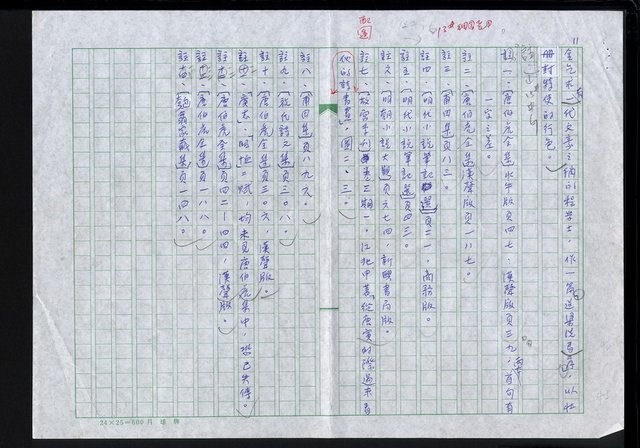 11
金乞求一代文章之稱的程學士，作一篇送吳洗馬序，以壯
冊封特使的行色。
註一、唐伯虎全集水牛版頁四七、漢聲版頁三九，首句有
一字之差。
註二、唐伯虎全集漢聲版頁一八七。
註三、甫田集頁八三。
註四、明代小說筆記選頁二一，商務版。
註五、明代小說筆記選頁四三。
註六、明朝小說大觀頁六七四，新興書局版。
註七、故宮季刊卷三期一。江兆申著，從唐寅的際遇來看
他的詩書畫，圖二、三。
配運
註八、甫田集頁八九六。
註九、枝氏詩文集頁三〇八。
註十、唐伯虎全集頁三〇六，漢聲版。
註十一、廣志、昭恤二賦，均未見唐伯虎集中，恐已失傳。
註十二、唐伯虎全集頁四二—四四，漢聲版。
註十三、唐伯虎全集頁一八八。
註十四、匏翁家藏集頁一四八。
24×25=600月雄牌